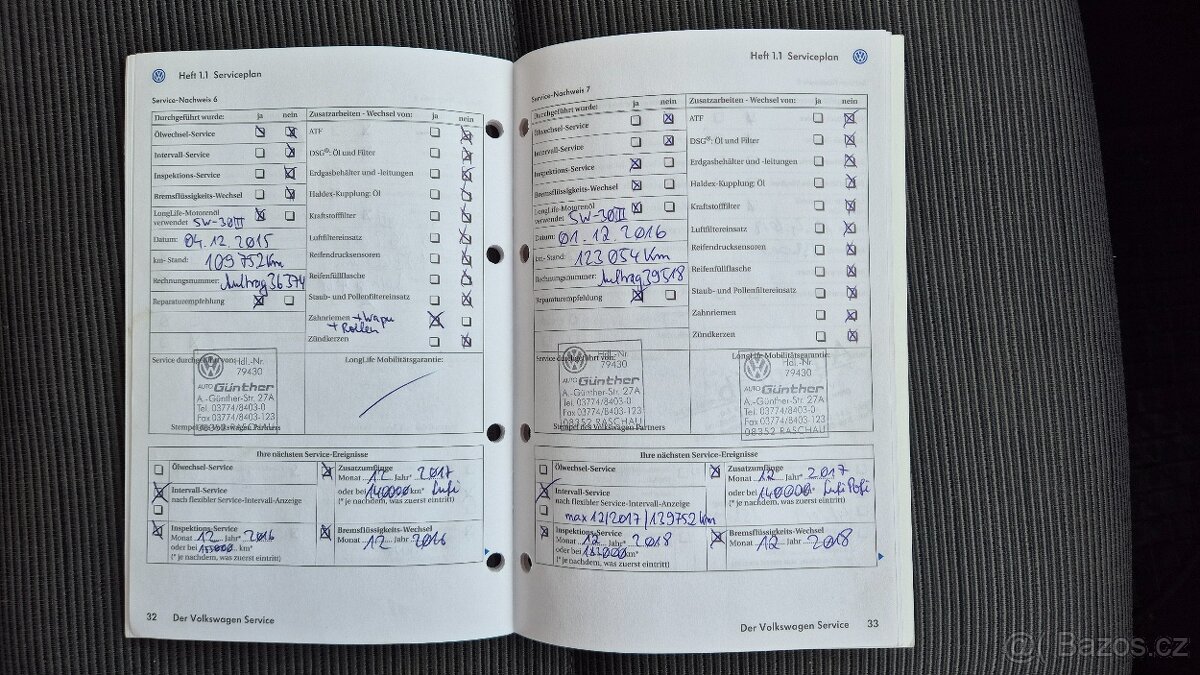 Heft 1.1 Serviceplan
Service-Nachweis 6
Durchgeführt wurde: ja nein
Ölwechsel-Service
Intervall-Service
Inspektions-Service
Bremsflüssigkeits-Wechsel
LongLife-Motorenöl
verwendet 5W-30 III
Datum: 04.12.2015
km-Stand: 109 752 km
Rechnungsnummer: Auftrag 36374
Reparaturempfehlung
Zusatzarbeiten - Wechsel von: ja nein
ATF
DSG®: Öl und Filter
Erdgasbehälter und -leitungen
Haldex-Kupplung: Öl
Kraftstofffilter
Luftfiltereinsatz
Reifendrucksensoren
Reifenfüllflasche
Staub- und Pollenfiltereinsatz
Zahnriemen + Wapu
+ Rollen
Zündkerzen
Service durchgeführt von:
Hdl.-Nr.
79430
AUTO Günther
A.-Günther-Str. 27A
Tel. 03774/8403-0
Fax 03774/8403-123
08352 RASCHAU
Stempel des Volkswagen Partners
LongLife Mobilitätsgarantie:
Ihre nächsten Service-Ereignisse
Ölwechsel-Service
Intervall-Service
nach flexibler Service-Intervall-Anzeige
Inspektions-Service
Monat 12 Jahr* 2016
oder bei km*
(* je nachdem, was zuerst eintritt)
Zusatzumfänge
Monat 12 Jahr* 2017
oder bei 140000 km* Lufi
(* je nachdem, was zuerst eintritt)
Bremsflüssigkeits-Wechsel
Monat 12 Jahr 2016
32 Der Volkswagen Service
Heft 1.1 Serviceplan
Service-Nachweis 7
Durchgeführt wurde: ja nein
Ölwechsel-Service
Intervall-Service
Inspektions-Service
Bremsflüssigkeits-Wechsel
LongLife-Motorenöl
verwendet 5W-30 III
Datum: 01.12.2016
km-Stand: 123 054 km
Rechnungsnummer: Auftrag 39518
Reparaturempfehlung
Zusatzarbeiten - Wechsel von: ja nein
ATF
DSG®: Öl und Filter
Erdgasbehälter und -leitungen
Haldex-Kupplung: Öl
Kraftstofffilter
Luftfiltereinsatz
Reifendrucksensoren
Reifenfüllflasche
Staub- und Pollenfiltereinsatz
Zahnriemen
Zündkerzen
Service durchgeführt von:
Hdl.-Nr.
79430
AUTO Günther
A.-Günther-Str. 27A
Tel. 03774/8403-0
Fax 03774/8403-123
08352 RASCHAU
Stempel des Volkswagen Partners
LongLife Mobilitätsgarantie:
Hdl.-Nr.
79430
AUTO Günther
A.-Günther-Str. 27A
Tel. 03774/8403-0
Fax 03774/8403-123
08352 RASCHAU
Ihre nächsten Service-Ereignisse
Ölwechsel-Service
Intervall-Service
nach flexibler Service-Intervall-Anzeige
max 12/2017/139752 km
Inspektions-Service
Monat 12 Jahr* 2018
oder bei km*
(* je nachdem, was zuerst eintritt)
Zusatzumfänge
Monat 12 Jahr* 2017
oder bei 140000 Lufi Pofi
(* je nachdem, was zuerst eintritt)
Bremsflüssigkeits-Wechsel
Monat 12 Jahr 2018
Der Volkswagen Service 33
Bazos.cz